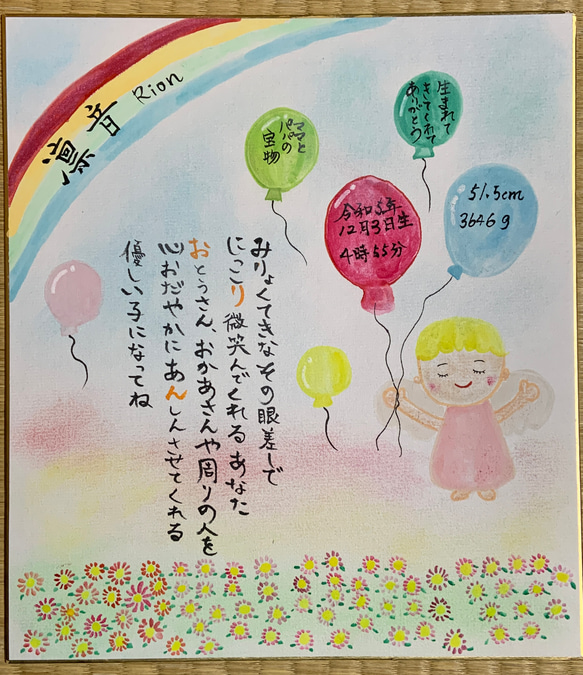 凛音 Rion
生まれて
きてくれて
ありがとう
ママと
パパの
宝物
令和5年
12月3日生
4時55分
51.5cm
3646g
みりょくてきなその眼差しで
にっこり微笑んでくれるあなた
おとうさん、おかあさんや周りの人を
心おだやかにあんしんさせてくれる
優しい子になってね